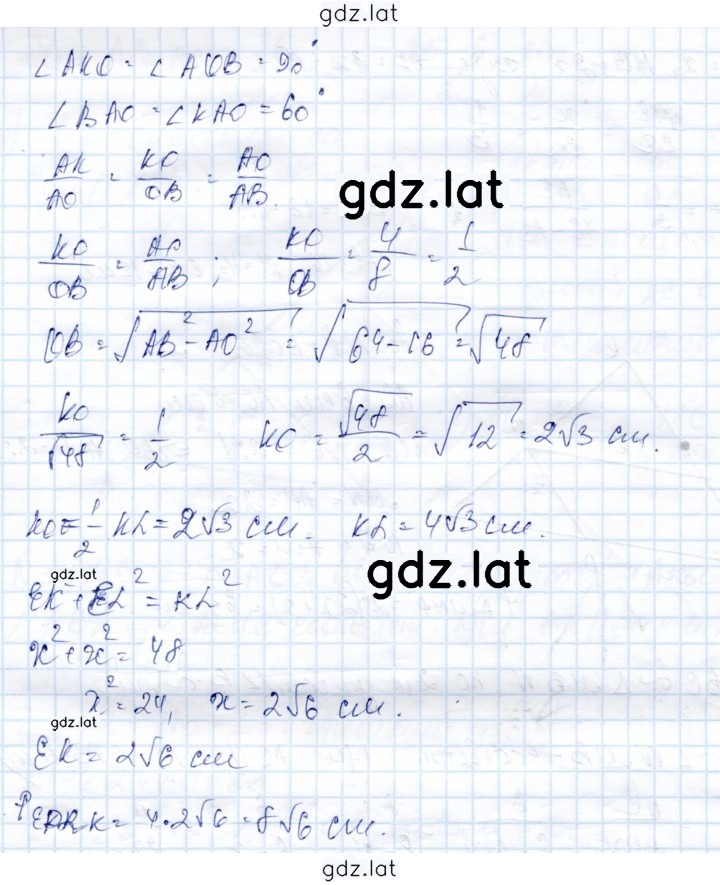 gdz.lat
∠AKO = ∠AOB = 90°
∠BAO = ∠KAO = 60°
AK/AO = KO/OB = AO/AB.
gdz.lat
KO/OB = AO/AB ; KO/OB = 4/8 = 1/2
OB = √(AB² - AO²) = √(64-16) = √48
KO/√48 = 1/2 KO = √48/2 = √12 = 2√3 см.
KO = 1/2 KL = 2√3 см. KL = 4√3 см.
gdz.lat
gdz.lat
EK² + EL² = KL²
x² + x² = 48
x² = 24, x = 2√6 см.
gdz.lat
EK = 2√6 см
= 4·2√6 = 8√6 см.
gdz.lat